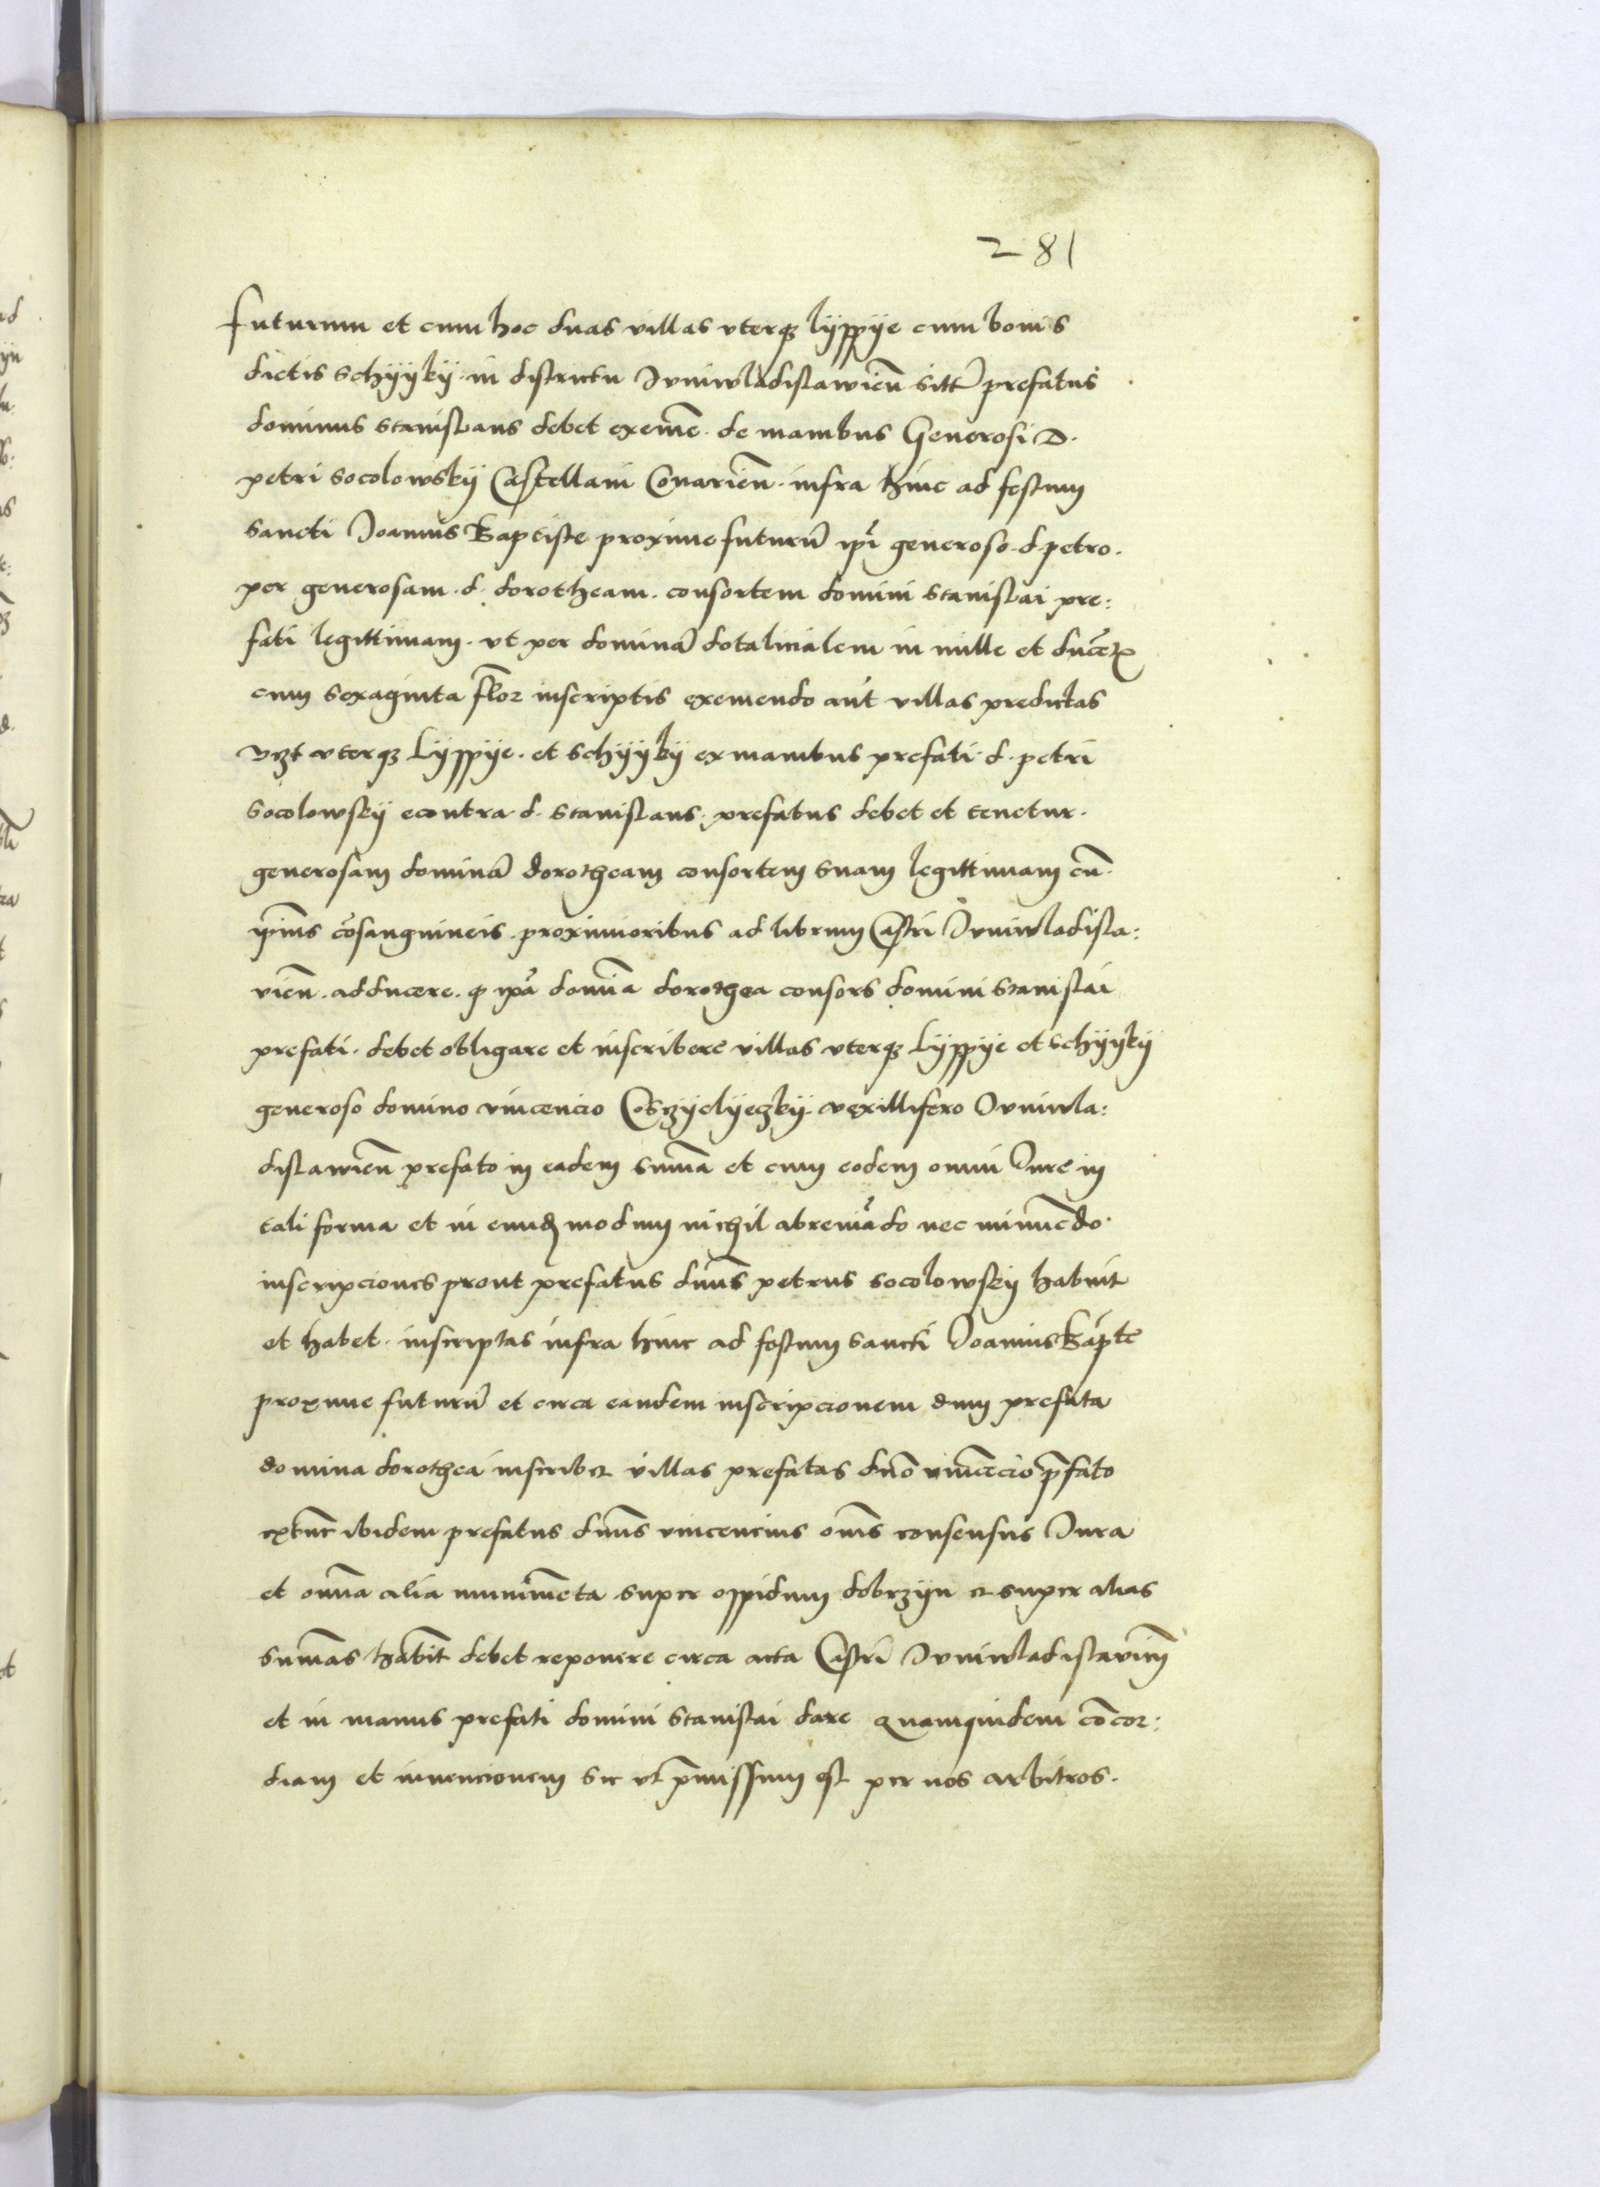 281
futurum et cum hoc duas villas uterq3 lyppye cum bonis
dictis schyyky in districtu Juniwladislawieñ sitt̃ prefatus
dominus stanislaus debet exeme͂. de manibus Generosi D.
petri socolowsky Castellani Conarieñ. infra hinc ad festum
sancti Joannis Baptiste proxime futurũ ip̃i generoso. d. petro.
per generosam. d. dorotheam. consortem domini stanislai pre:
fati legittimam. ut per dominã dotalicialem in mille et ducẽt
cum sexaginta flor̃ inscriptis exemendo aũt villas predictas
vz̃t uterq3 Lyppye. et schyyky ex manibus prefati. d. petri
socolowsky econtra d. stanislaus. prefatus debet et tenetur.
generosam dominã dorotheam consortem suam legittimam cũ.
ip̃ius cõsanguineis. proximioribus ad librum Castri Juniwladisla:
vieñ. adducere. q̃ ip̃a domĩa dorothea consors domini stanislai
prefati. debet obligare et inscribere villas uterq3 Lyppye et schyyky
generoso domino vincencio Cosczyelyeczky. vexillifero Juniwla:
dislawieñ prefato in eadem sum̃a et cum eodem omni Jure in
tali forma et in eund modum nichil abreviãdo nec minuẽdo.
inscripciones prout prefatus dñus petrus socolowsky habuit
et habet. inscriptas infra hinc ad festum sancti Joannis Bapt̃e
proxime futurũ et circa eandem inscripcionem dum prefata
domina dorothea inscribet villas prefatas dño vincẽcio p̃fato
extũc ibidem prefatus dñus vincencius om̃s consensus Jura
et om̃ia alia munimẽta super oppidum dobrzyn et super alias
sum̃as habit̃ debet reponere circa acta Castri Juniwladislavieñ
et in manus prefati domini stanislai dare quamquidem cõcor:
diam et invencionem sic ut p̃missum est per nos arbitros.